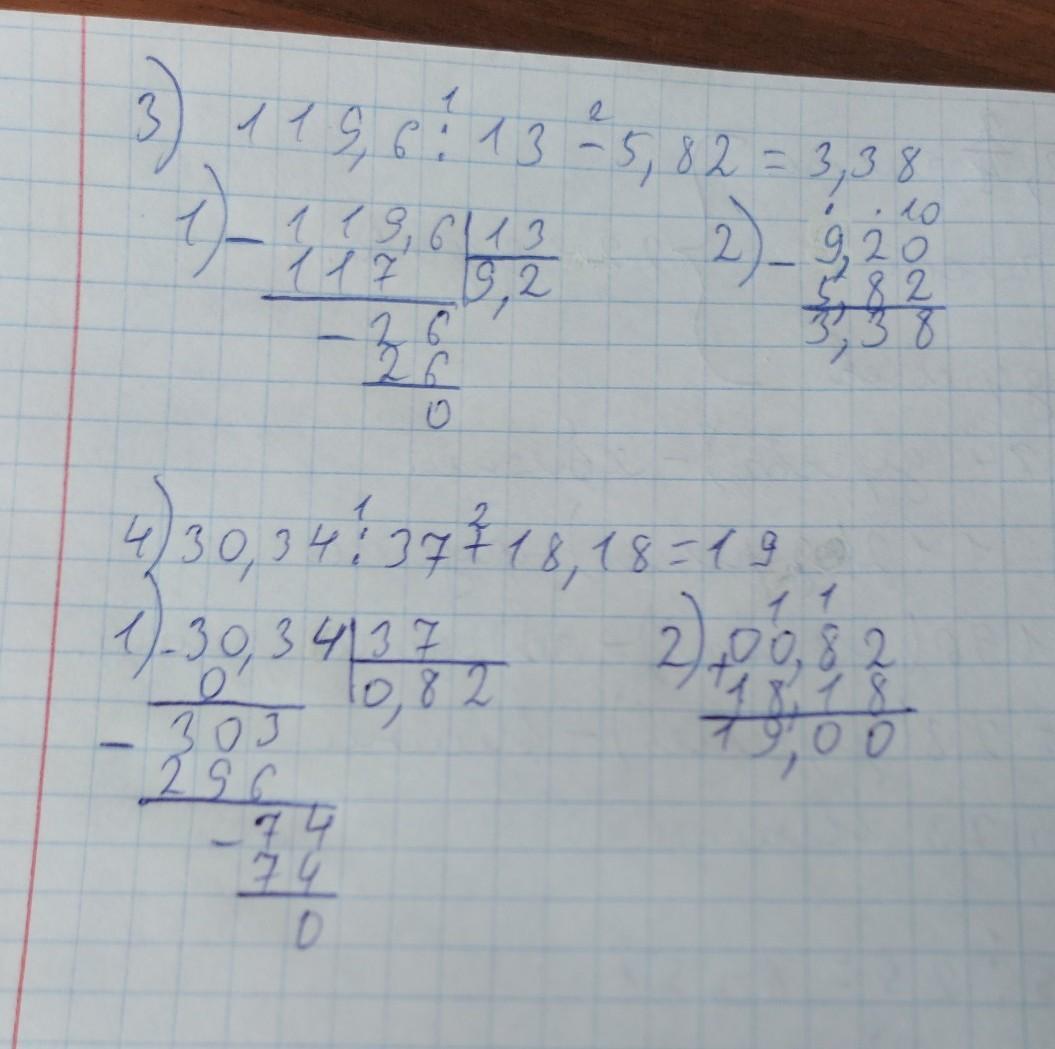 3) 119,6 : 13 - 5,82 = 3,38
1 2
1) - 119,6 | 13
117 9,2
- 26
26
0
2) - 9,20
. . 10
5,82
3,38
4) 30,34 : 37 + 18,18 = 19
1 2
1) - 30,34 | 37
0 0,82
- 303
296
- 74
74
0
2) + 00,82
1 1
18,18
19,00